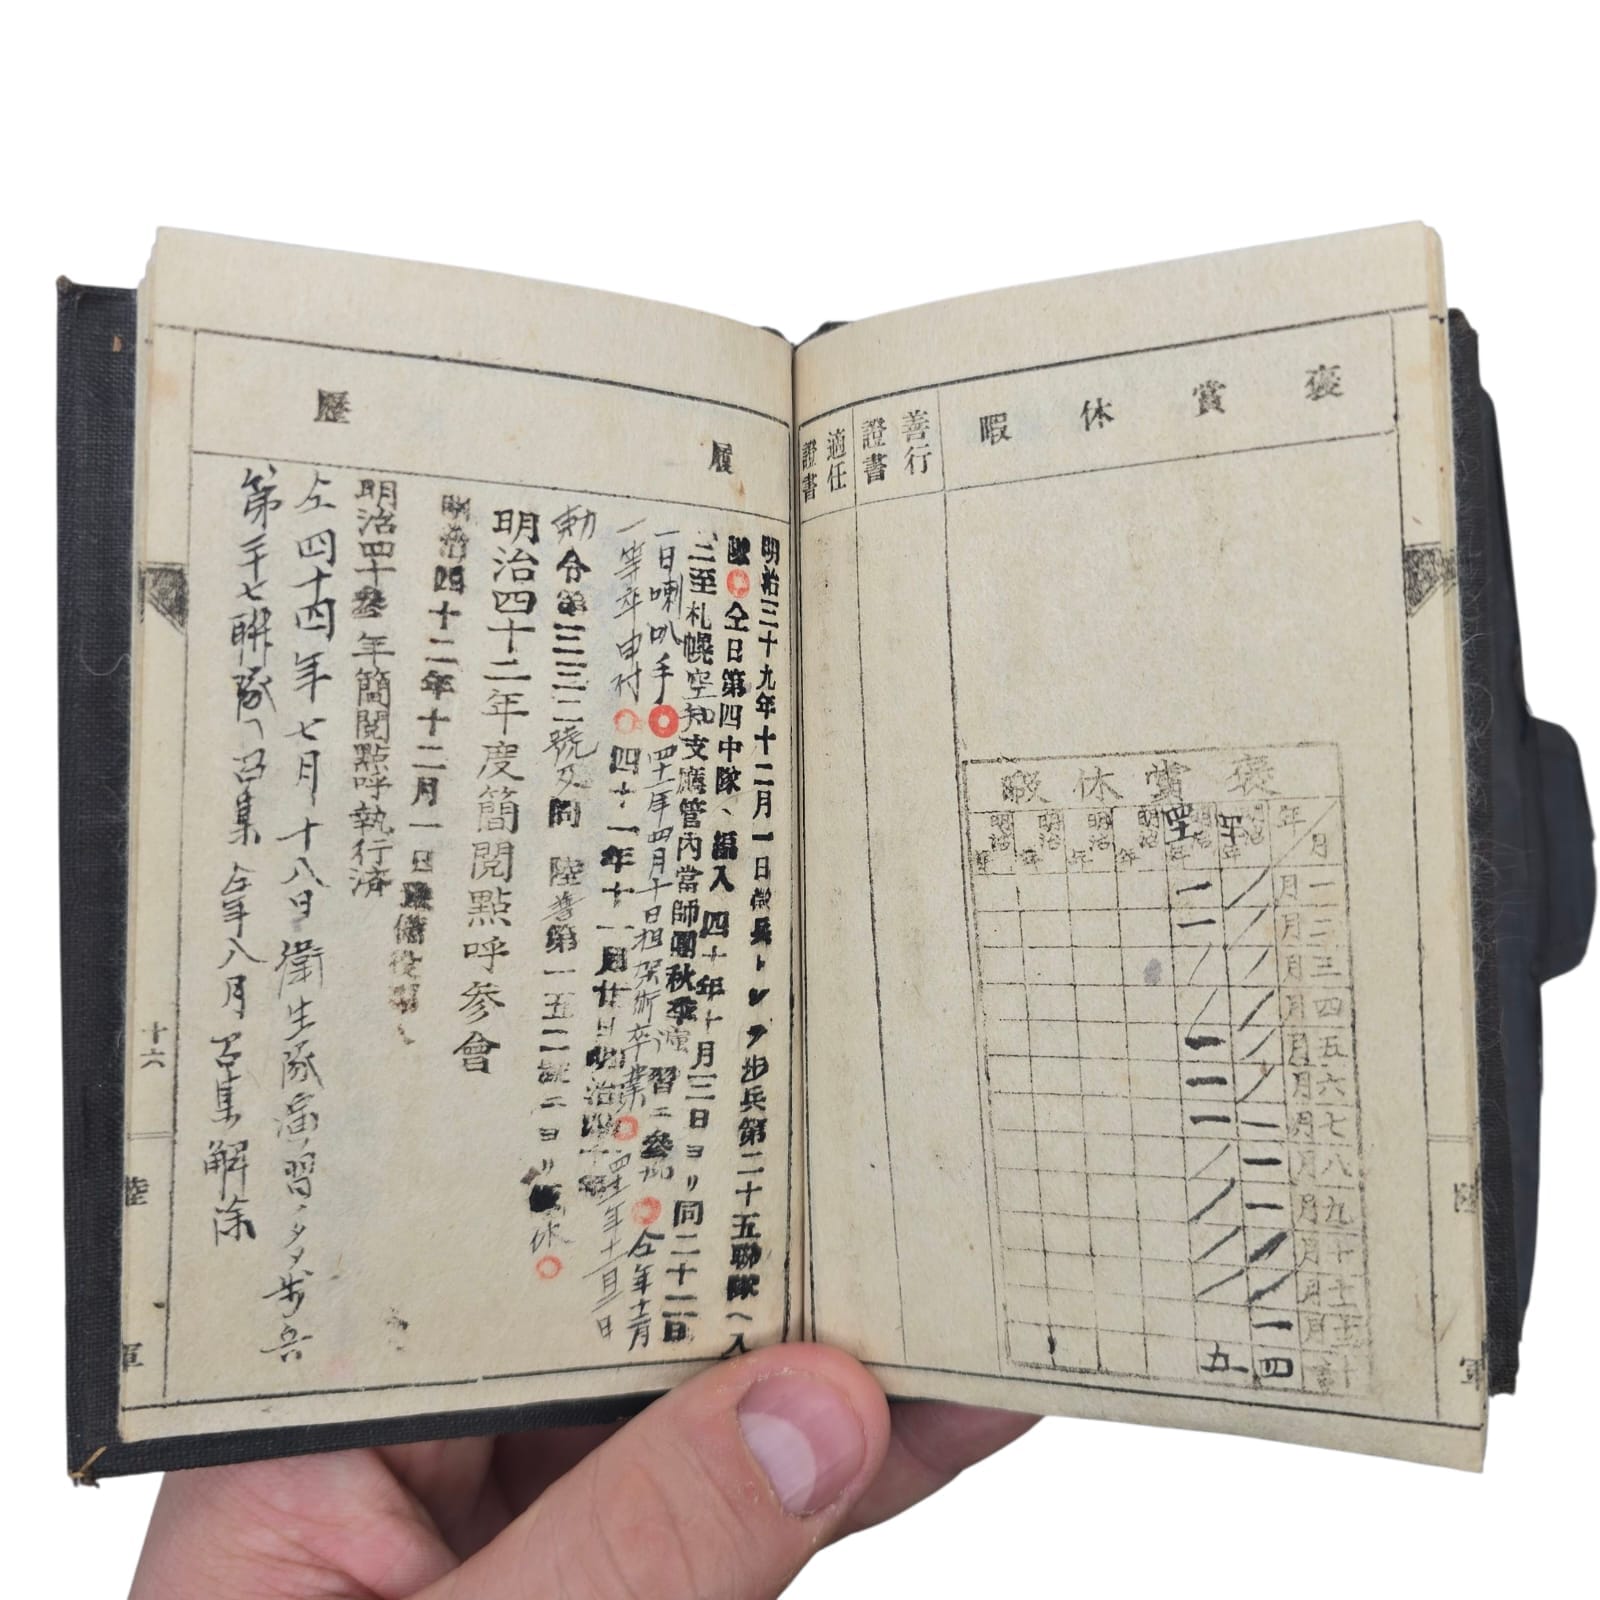 褒賞休暇
善行證書
適任證書
褒賞休暇
年 月
明治 年
明治四十一年
明治 年
明治 年
明治 年
明治 年
一月
二月
三月
四月
五月
六月
七月
八月
九月
十月
十一月
十二月
計
四
五
陸軍
履歷
明治三十九年十二月一日徵兵トシテ步兵第二十五聯隊ヘ入
隊 仝日第四中隊ヘ編入 四十年十月三日ヨリ同二十二日
ニ至札幌空知支廳管內當師團秋季演習ニ參加 仝年十二月
一日喇叭手 四十一年四月十日担架術卒業 四十一年十二月一日
一等卒申付 四十一年十一月廿日明治四十
勅令第三三二號及同 陸普第一五二 號ニヨリ 休
明治四十二年度簡閱點呼參會
明治四十二年十二月一日 備役
明治四十參年簡閱點呼執行済
仝四十四年七月十八日衛生隊演習ノタメ步兵
第二十七聯隊ヘ召集 仝年八月 召集解除
十六
陸軍